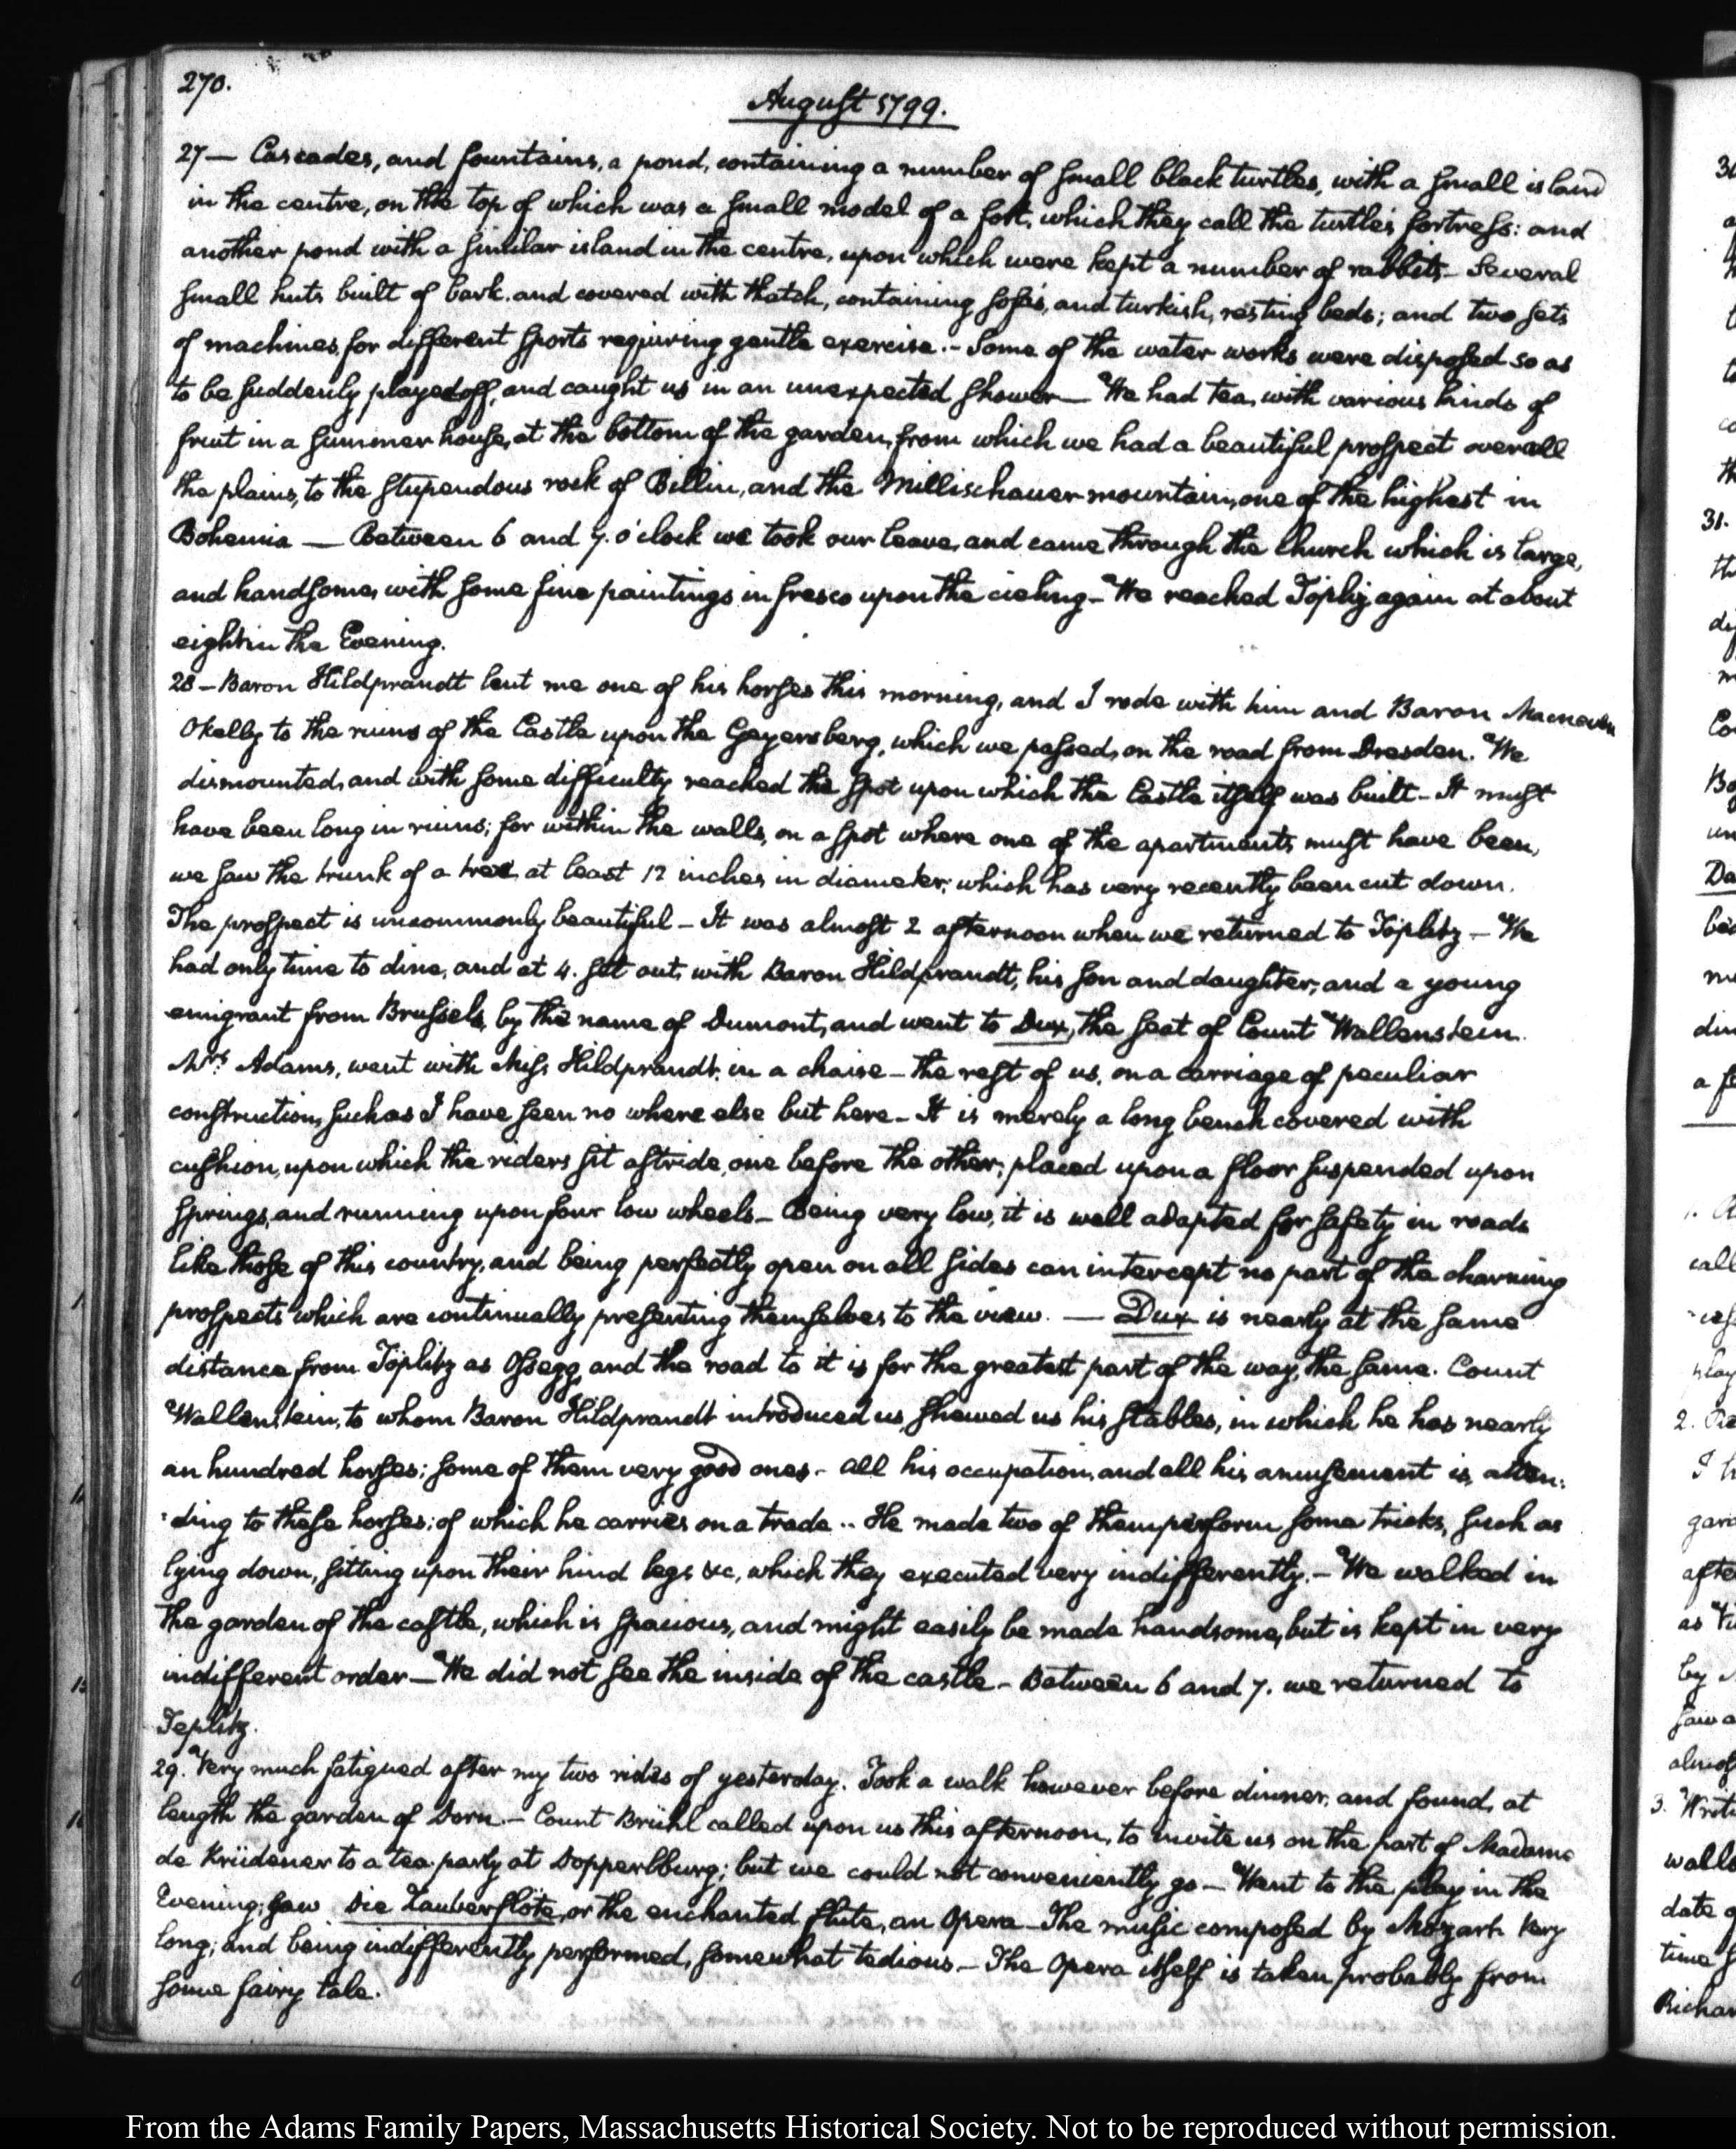 270.
August 1799.
27— Cascades, and fountains, a pond, containing a number of small black turtles, with a small island
in the centre, on the top of which was a small model of a fort, which they call the turtle's fortress: and
another pond with a similar island in the centre, upon which were kept a number of rabbits— Several
small huts built of bark. and covered with thatch, containing sofas, and turkish, resting beds; and two sets
of machines, for different sports requiring gentle exercise.— Some of the water works were disposed so as
to be suddenly played off, and caught us in an unexpected shower— We had tea, with various kinds of
fruit in a summer house, at the bottom of the garden, from which we had a beautiful prospect over all
the plains, to the stupendous rock of Billin, and the Millischauer mountain, one of the highest in
Bohemia — Between 6 and 7. o'clock we took our leave, and came through the church which is large,
and handsome, with some fine paintings in fresco upon the cieling— We reached Töpliz again at about
eight in the Evening.
28— Baron Hildprandt lent me one of his horses this morning, and I rode with him and Baron Macneven
Okelly to the ruins of the Castle upon the Geyersberg, which we passed, on the road from Dresden. We
dismounted, and with some difficulty reached the spot upon which the Castle itself was built— It must
have been long in ruins; for within the walls, on a spot where one of the apartments must have been,
we saw the trunk of a tree, at least 12 inches in diameter, which has very recently been cut down.
The prospect is uncommonly beautiful— It was almost 2 afternoon when we returned to Töplitz— We
had only time to dine, and at 4. set out, with Baron Hildprandt, his son and daughter, and a young
emigrant from Brussels, by the name of Dumont, and went to Dux, the seat of Count Wallenstein.
Mrs. Adams, went with Miss Hildprandt, in a chaise— the rest of us, on a carriage of peculiar
construction, such as I have seen no where else but here— It is merely a long bench covered with
cushion, upon which the riders sit astride, one before the other; placed upon a floor suspended upon
springs, and running upon four low wheels— Being very low, it is well adapted for safety in roads
like those of this country, and being perfectly open on all sides can intercept no part of the charming
prospects which are continually presenting themselves to the view. — Dux is nearly at the same
distance from Töplitz as Ossegg, and the road to it is for the greatest part of the way, the same. Count
Wallenstein, to whom Baron Hildprandt introduced us, shewed us his stables, in which he has nearly
an hundred horses; some of them very good ones— all his occupation, and all his amusement is, atten:
:ding to these horses; of which he carries on a trade.. He made two of them perform some tricks, such as
lying down, sitting upon their hind legs &c, which they executed very indifferently.— We walked in
the garden of the castle, which is spacious, and might easily be made handsome, but is kept in very
indifferent order— We did not see the inside of the castle— Between 6 and 7. we returned to
Teplitz.
29. Very much fatigued after my two rides of yesterday. Took a walk however before dinner, and found, at
length the garden of Dorn.— Count Brühl called upon us this afternoon, to invite us on the part of Madame
de Krüdener to a tea party at Dopperlburg; but we could not conveniently go— Went to the play in the
Evening; saw Die Zauberflöte, or the enchanted flute, an Opera— The music composed by Mozart. Very
long; and being indifferently performed, somewhat tedious.— The Opera itself is taken probably from
some fairy tale.
From the Adams Family Papers, Massachusetts Historical Society. Not to be reproduced without permission.